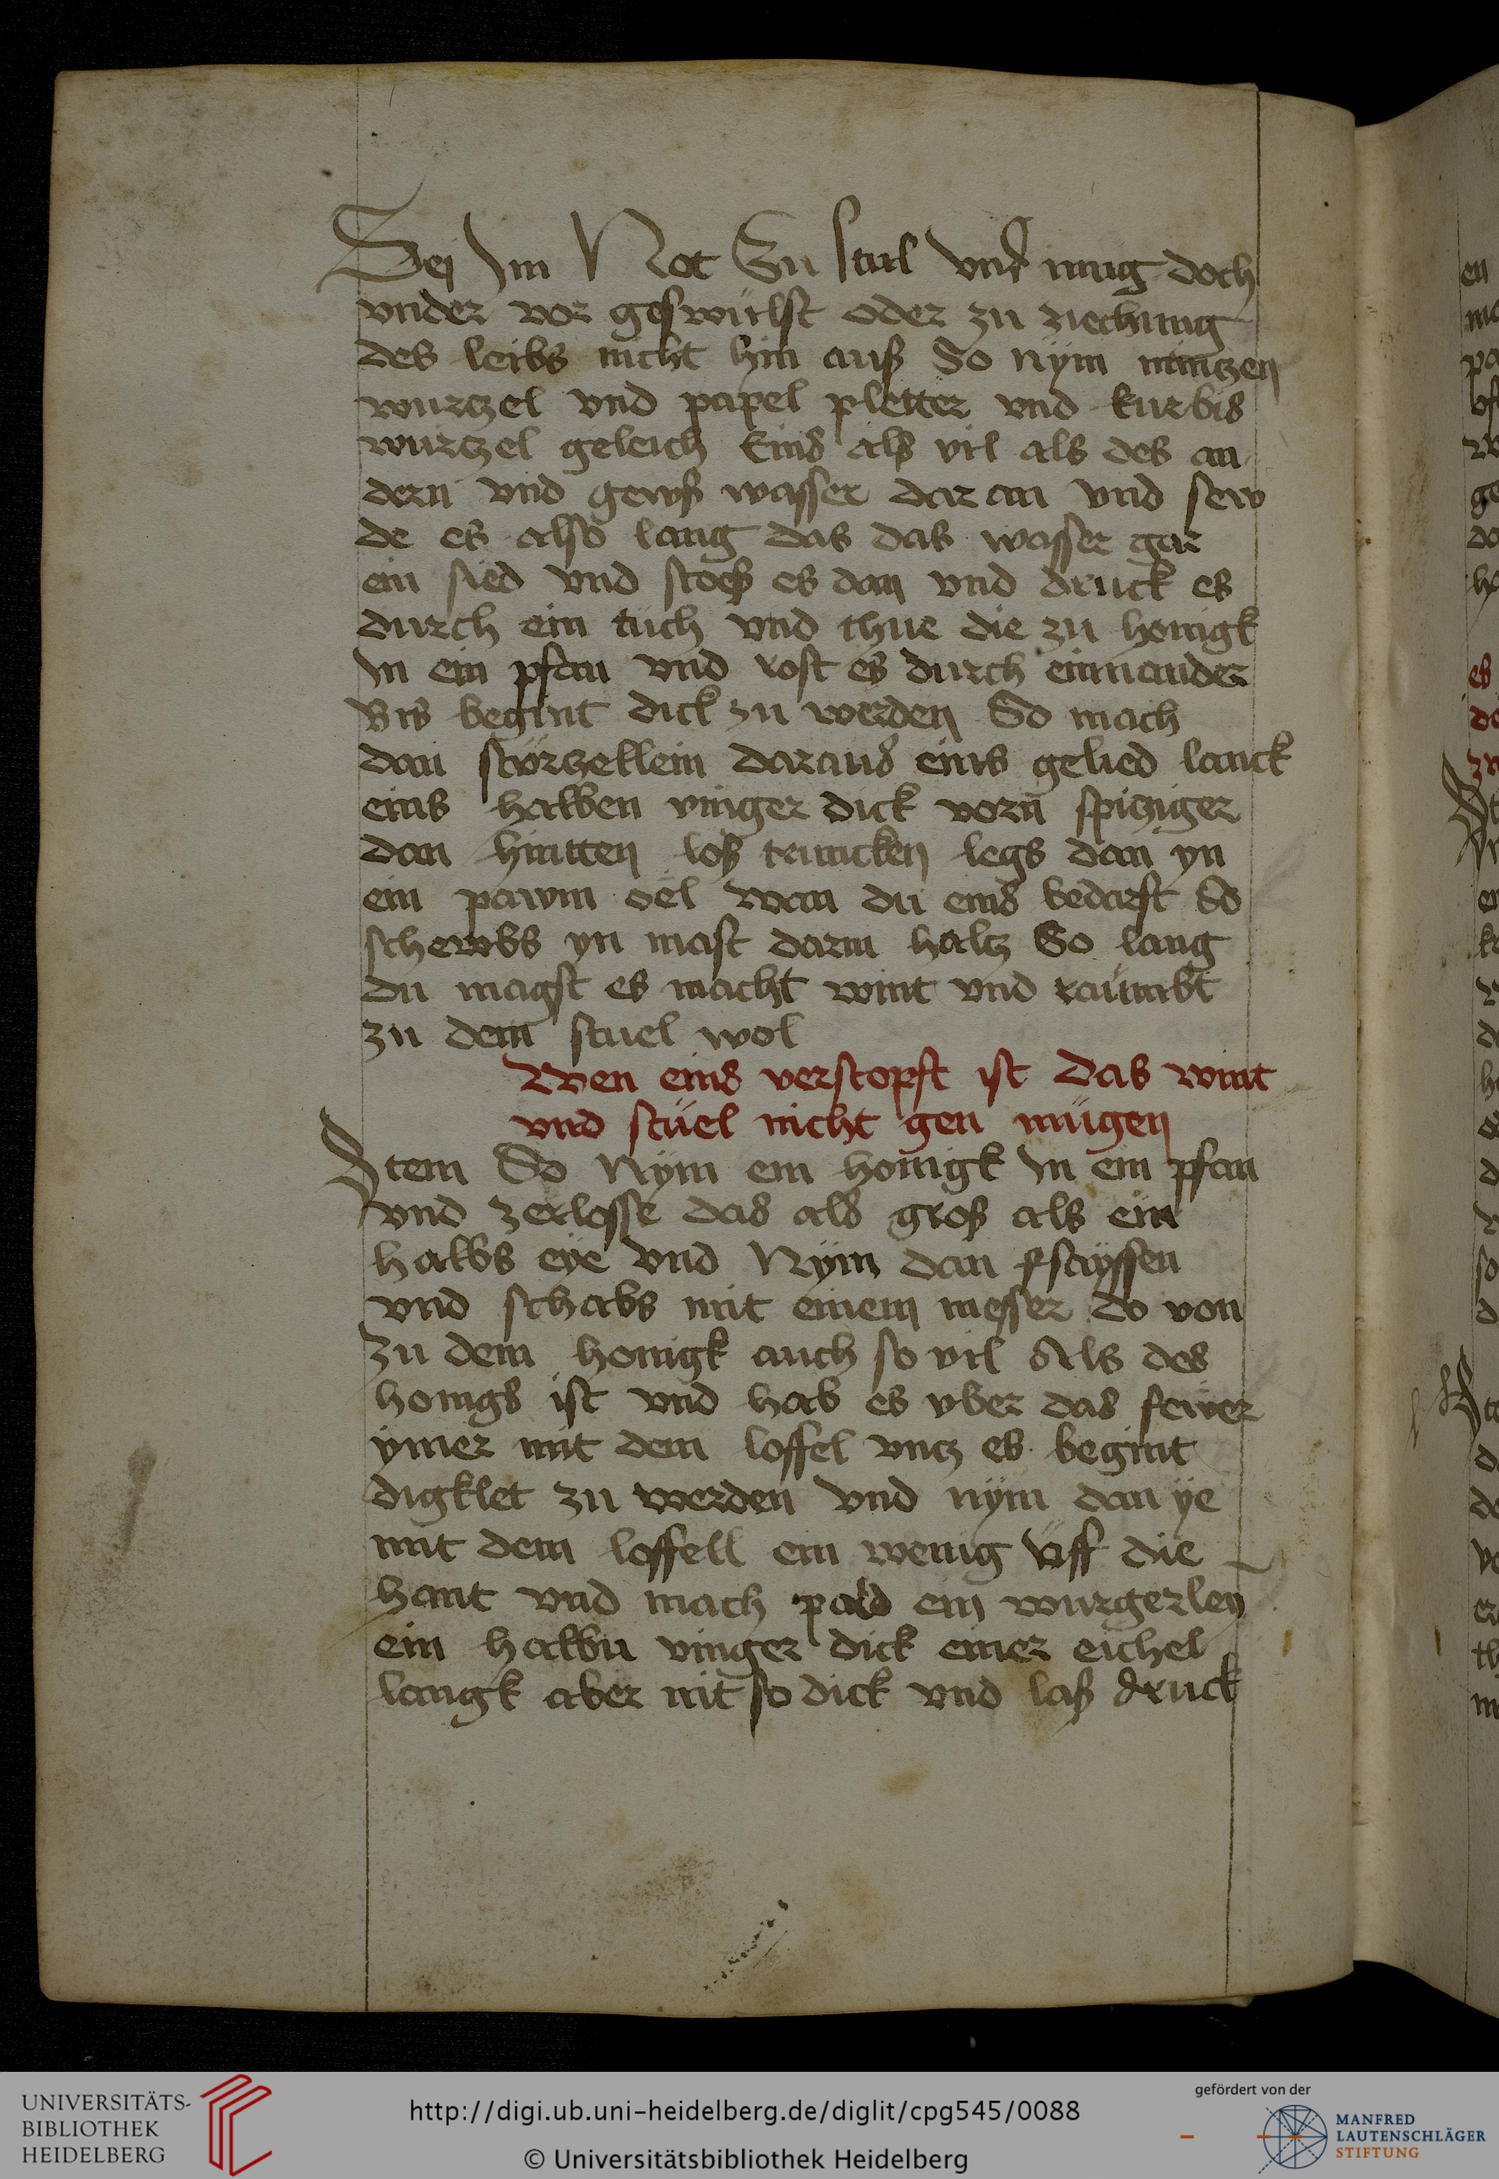 Sej Im Not Zu stul vnd mug doch
vnder vor geswülst oder zu ziechung
des leibs nicht hin auß So nÿm mintzen
wurtzel vnd papel pletter vnd kurbis
wurtzel geleich Eins als vil als des an
dern vnd gewß wasser dar an vnd sew
de es also lang das das wasser gar
ein sied vnd stoeß es dan vnd druck es
durch ein tüch vnd thue die zu honigk
In ein pfan vnd rost es durch einnander
Bis begint dick zu werden So mach
dan störtzellein daraus eins gelied lanck
eins halben vinger dick vorn spitziger
dan hintten loß trucken legs dan yn
ein pawm oel wan du eins bedarft So
schewbs yn mast darm haltz So lang
du magst es macht wint vnd raümbt
zu dem stuel wol
Wen eins verstopft ist das wint
vnd stüel nicht gen mügen
Item So Nÿm ein honigk In ein pfan
vnd zerlosse das als groß als ein
halbs eÿe vnd Nÿm dan
vnd schabs mit einem messer do von
zu dem honigk auch so vil Als des
honigs ist vnd hab es vber das fewer
ÿmer mit dem loffel vntz es begint
digklet zu werden vnd nÿm dan ÿe
mit dem loffell ein wenig vff die
hant vnd mach pald ein wurgerlen
ein halbn vinger dick einer eichel
langk aber nit so dick vnd laß druck
en
pa
ge
do
es
do
zw
er
so
d
UNIVERSITÄTS-
BIBLIOTHEK
HEIDELBERG
http://digi.ub.uni-heidelberg.de/diglit/cpg545/0088
© Universitätsbibliothek Heidelberg
gefördert von der
MANFRED
LAUTENSCHLÄGER
STIFTUNG